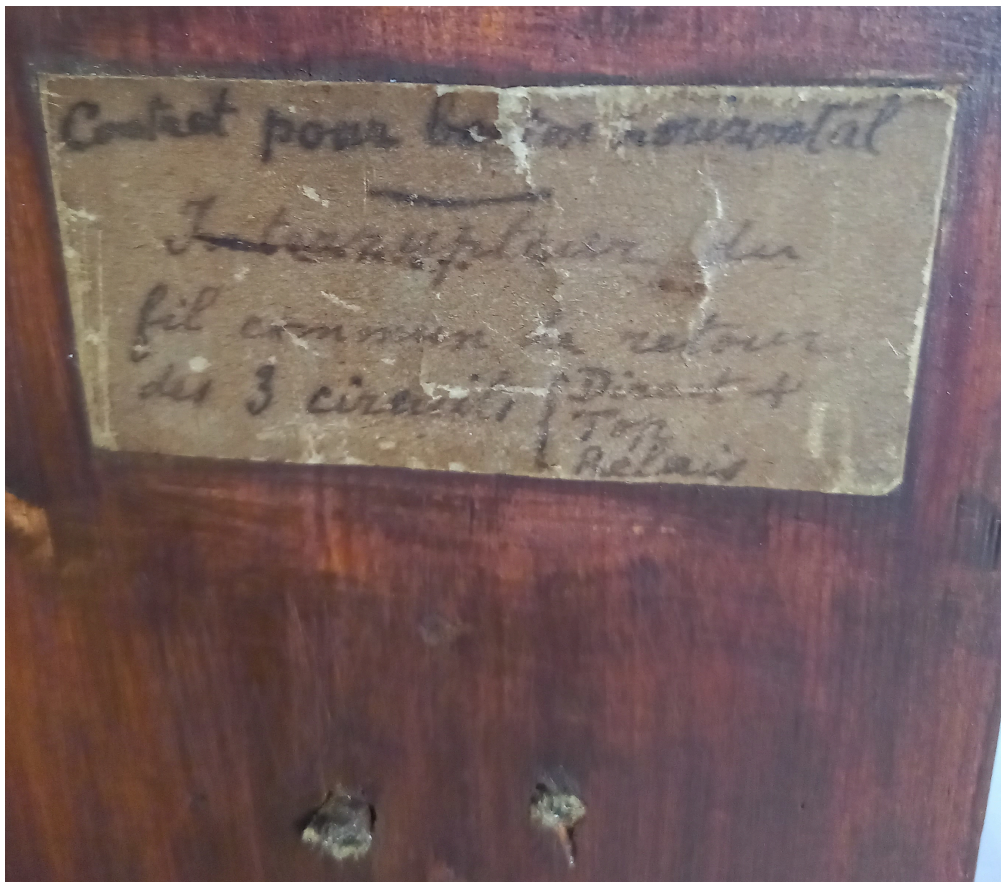 Contact pour horizontal
Interrupteur du
fil commun de retour
des 3 circuits { Direct +
Top
Relais